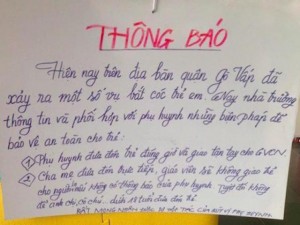 THÔNG BÁO
Hiện nay trên địa bàn quận Gò Vấp đã
xảy ra một số vụ bắt cóc trẻ em. Nay nhà trường
thông tin và phối hợp với phụ huynh những biện pháp để
bảo vệ an toàn cho trẻ:
① Phụ huynh đưa đón trẻ đúng giờ và giao tận tay cho GVCN.
② Cha mẹ đưa đón trực tiếp, giáo viên sẽ không giao trẻ
cho người nếu không có thông báo của phụ huynh. Tuyệt đối không
để anh, chị, cô, chú dưới 18 tuổi đưa đón trẻ
RẤT MONG NHẬN ĐƯỢC SỰ HỢP TÁC CỦA QUÝ PHỤ HUYNH